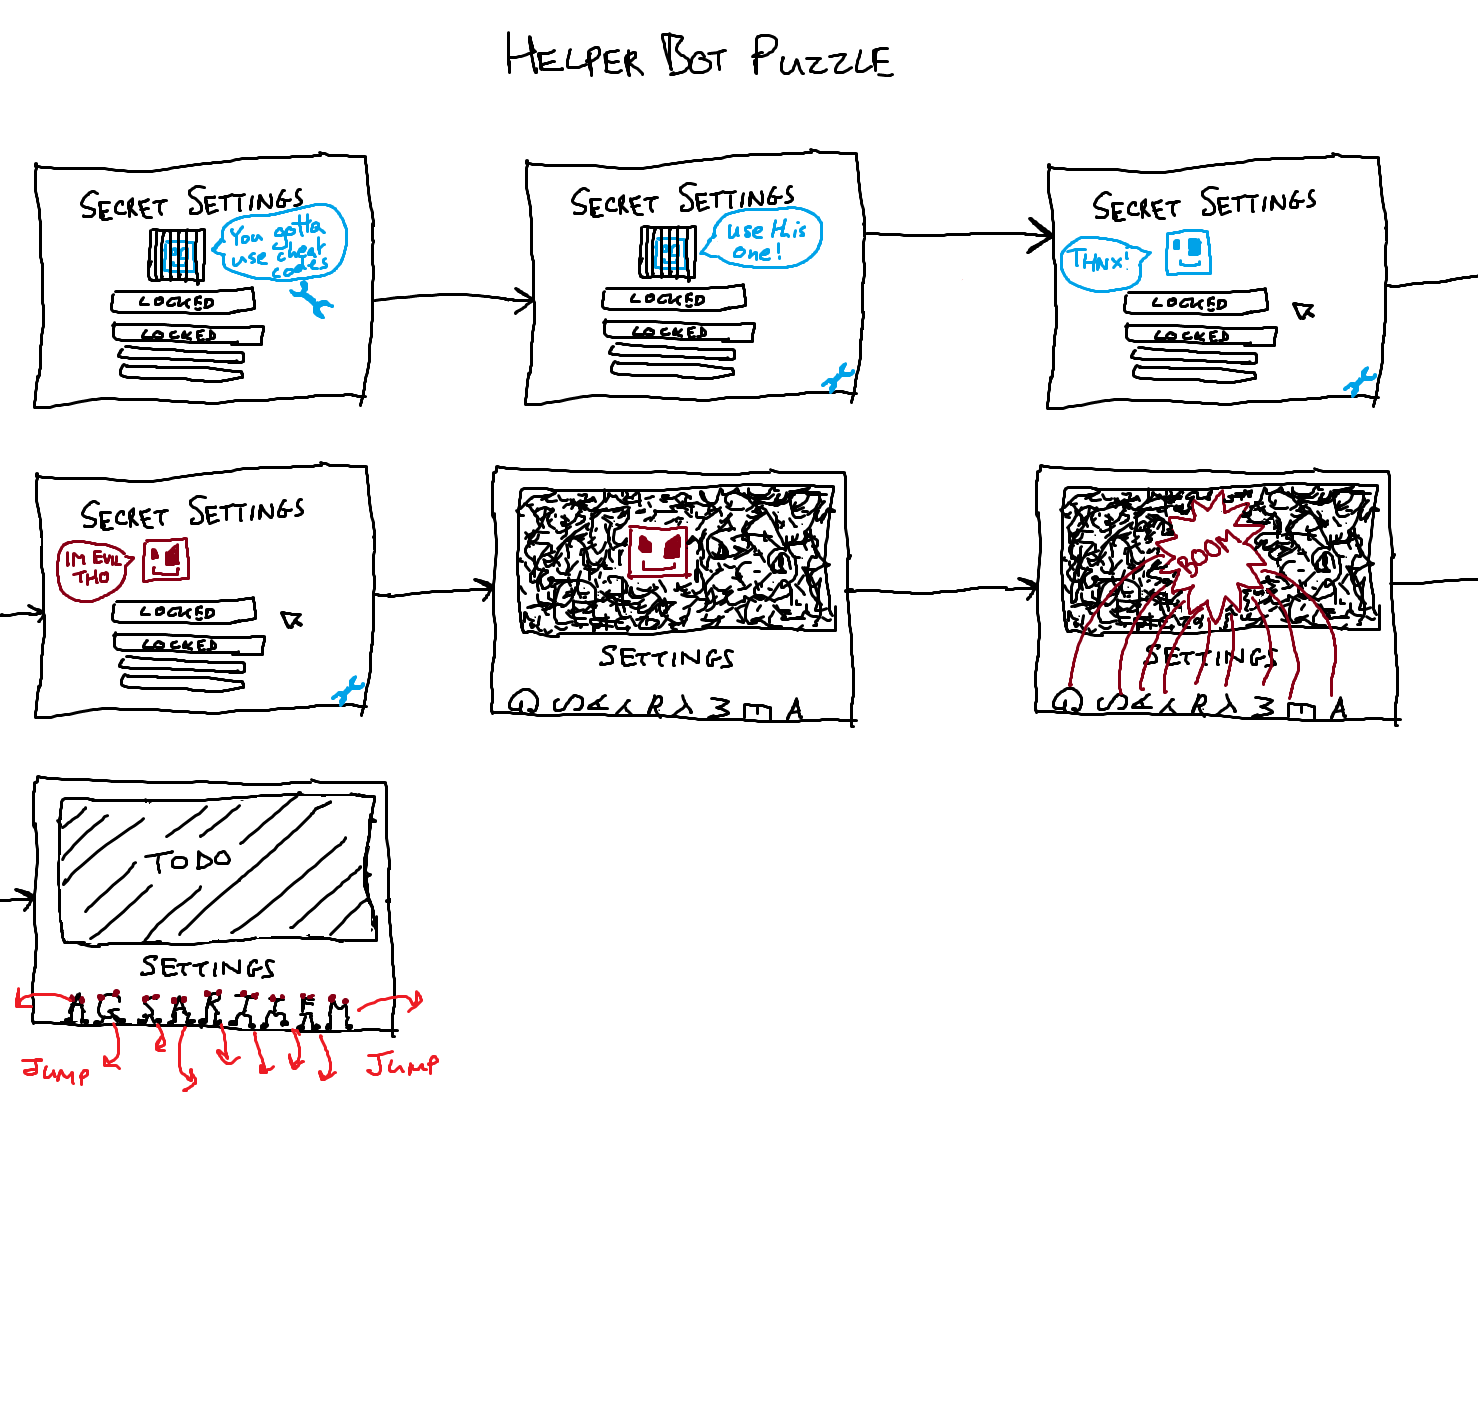 HELPER BOT PUZZLE
SECRET SETTINGS
You gotta
use cheat
codes
LOCKED
LOCKED
SECRET SETTINGS
use this
one!
LOCKED
LOCKED
SECRET SETTINGS
THNX!
LOCKED
LOCKED
SECRET SETTINGS
IM EVIL
THO
LOCKED
LOCKED
SETTINGS
SETTINGS
BOOM
TODO
SETTINGS
A G S A R T I E M
Jump
Jump